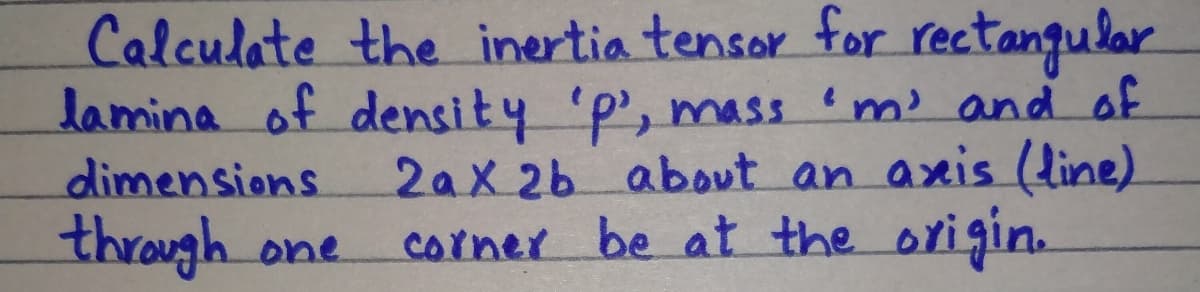 Calculate the inertia tensor for rectangular
lamina of density 'p', mass 'm' and of
dimensions 2a X 2b about an axis (line)
through one corner be at the origin.